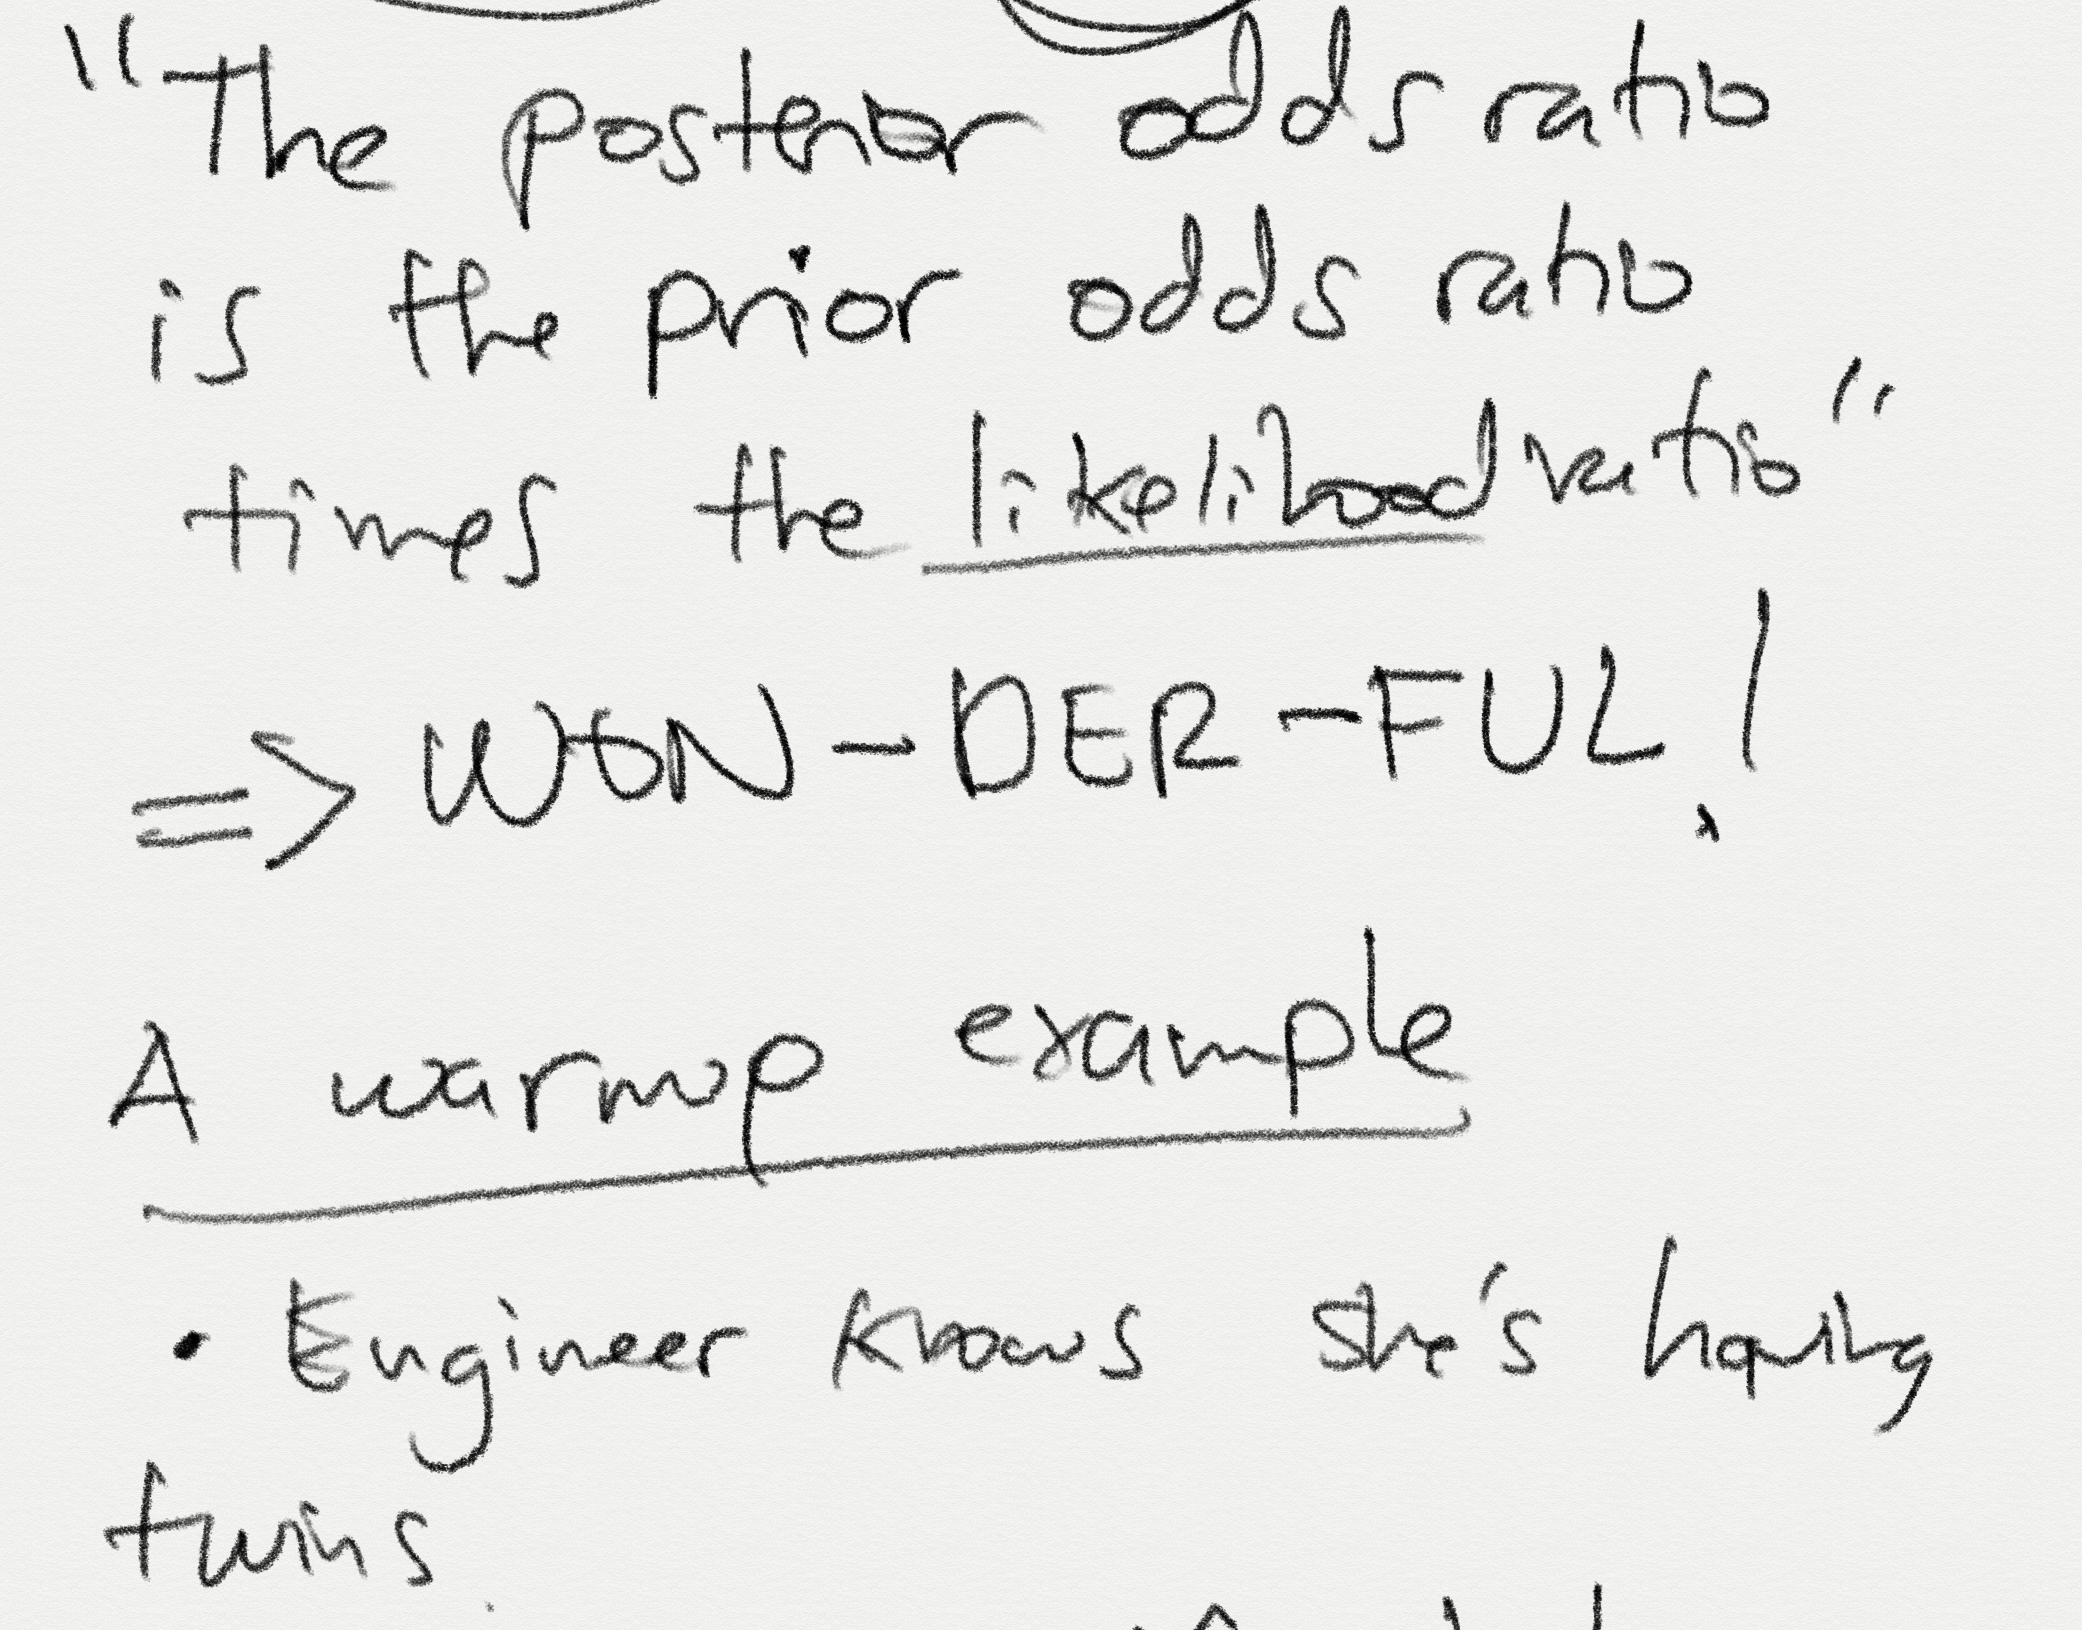 "The posterior odds ratio
is the prior odds ratio
times the likelihood ratio"
=> WON-DER-FUL!
A warmup example
• Engineer knows she's having
twins.